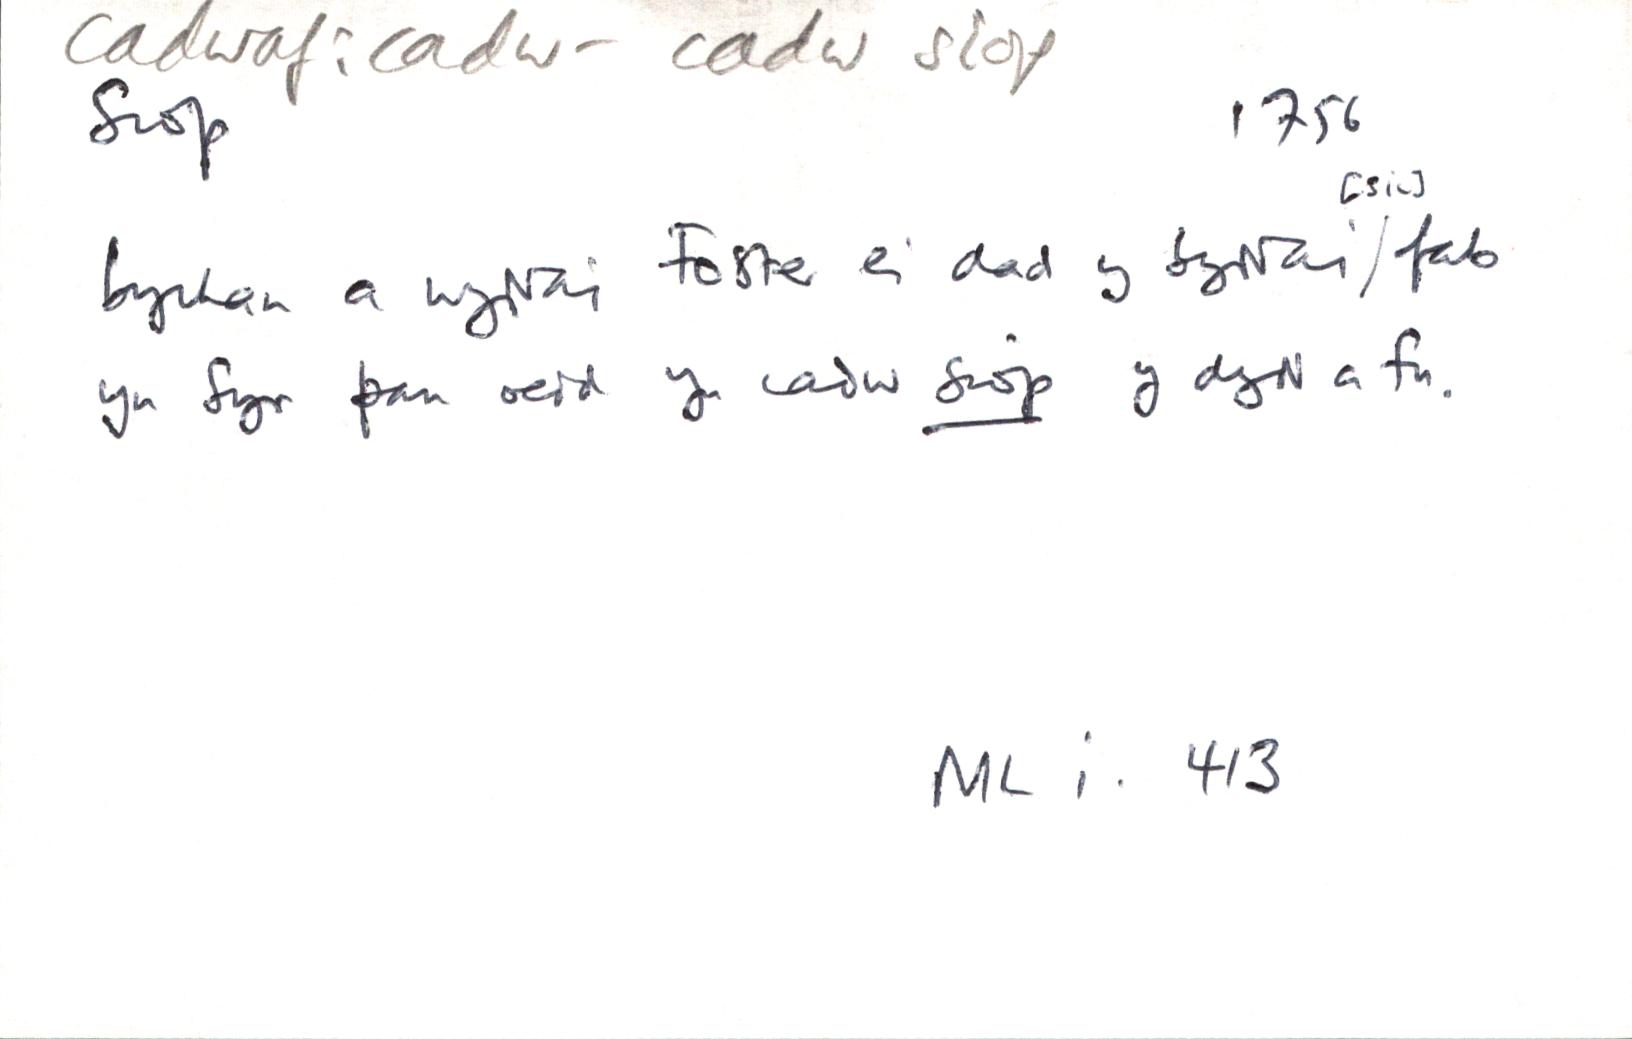 cadwaf: cadw – cadw siop
Siôp
1756
[sic]
bychan a wyddai Foster ei dad y byddai / fab
yn Syr pan oedd yn cadw siôp y dydd a fu.
ML i. 413